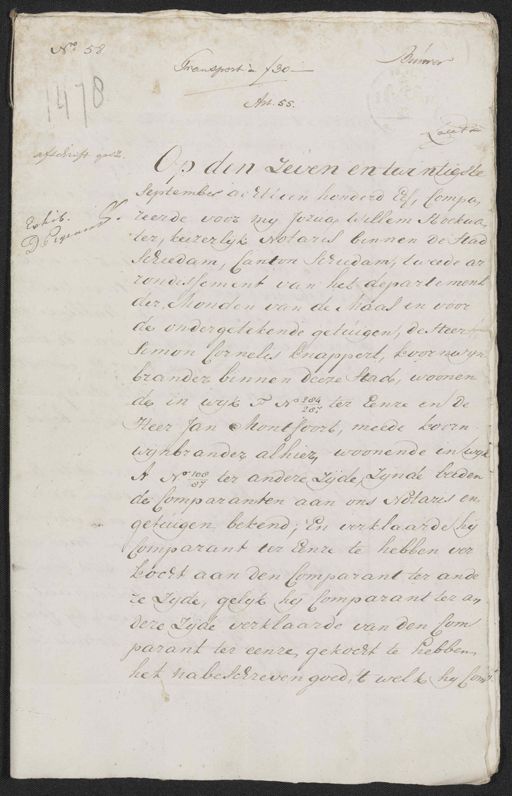 No 58
Transport à f 30 —
Art. 55.
1478
afschrift
Exhib.
Op den Zeven en twintigste
September achttien honderd Elf, Compa,
reerde voor my Josua, Willem
ter, keizerlyk Notaris binnen de Stad
Schiedam, Canton Schiedam, tweede ar
rondissement van het departement
der, Monden van de Maas en voor
de ondergetekende getuigen, de Heer
Simon Cornelis Knappert, koornwyn
brander binnen deeze Stad, woonen
de in wyk F No 264/267 ter Eenre en de
Heer Jan Montfoort, meede koorn
wynbrander alhier, woonende in wyk
A No 108/87 ter andere Zyde, Zynde beiden
de Comparanten aan ons Notaris en
getuigen bekend; En verklaarde hy
Comparant ter Eenre te hebben ver
kocht aan den Comparant ter ande
re Zyde, gelyk hy Comparant ter an
dere Zyde verklaarde van den Com
parant ter eenre, gekocht te hebben,
het nabeschreven goed, 't welk hy Com